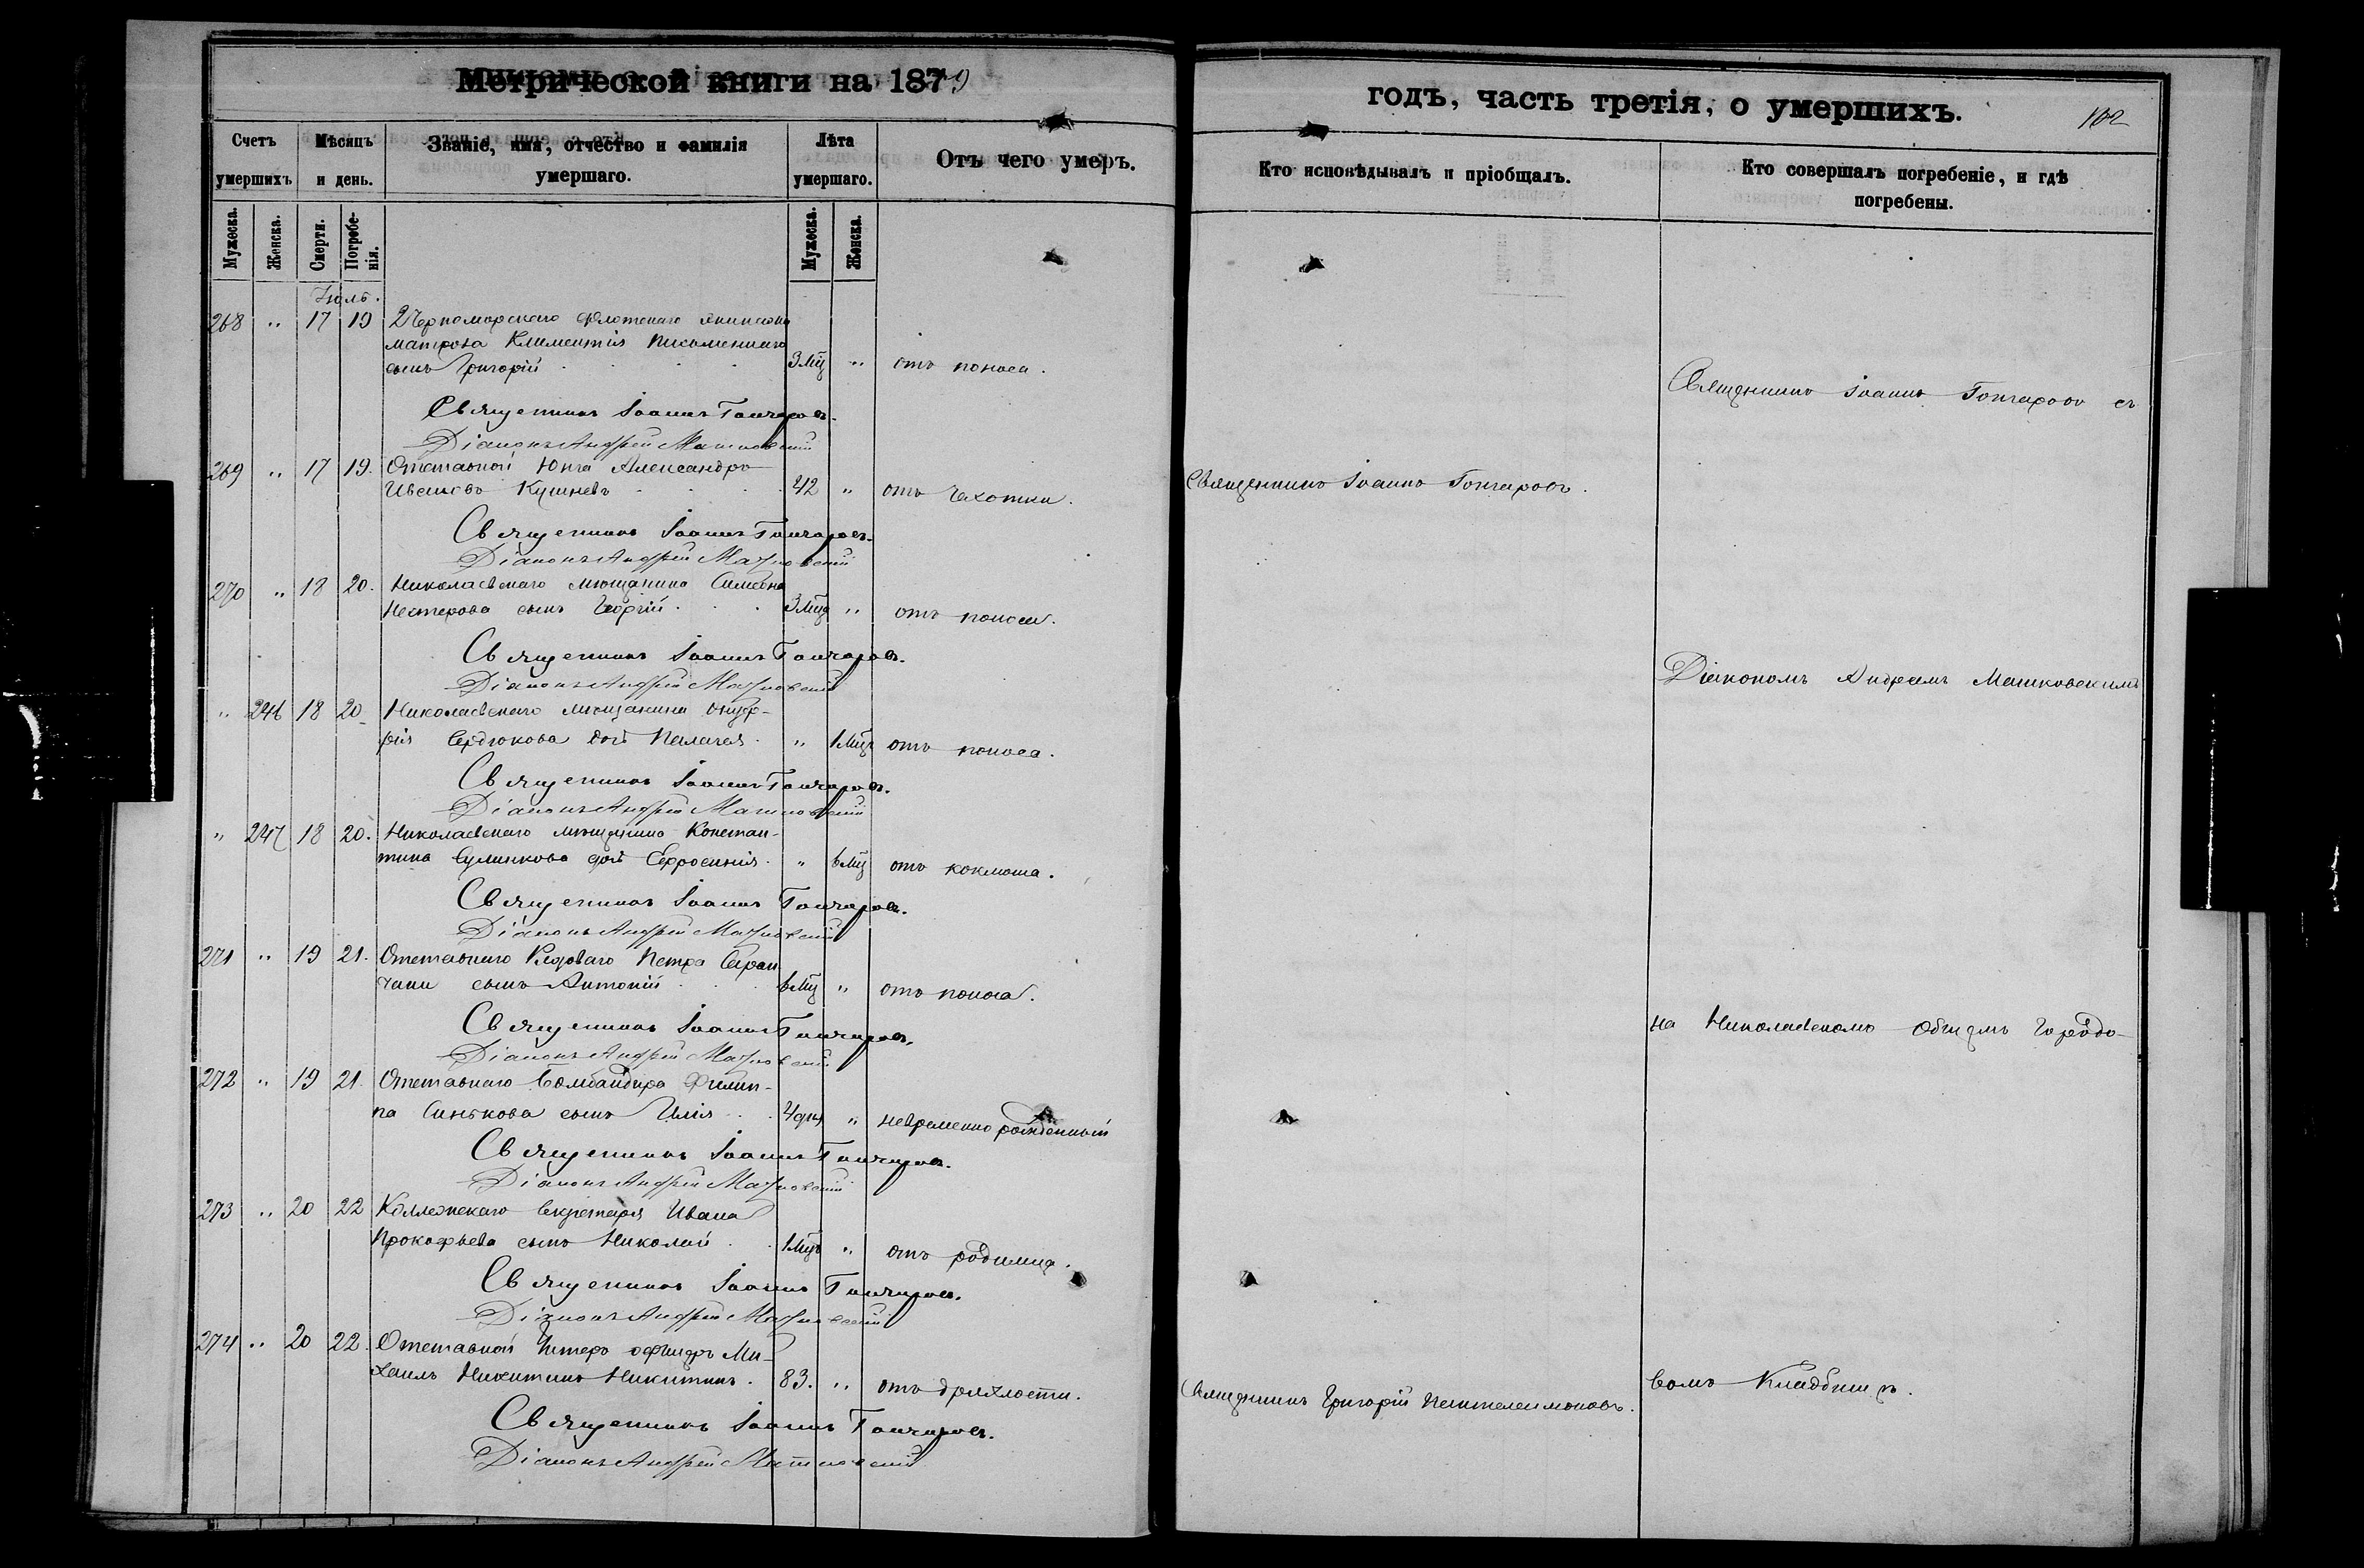 Метрической книги на 1879
Счетъ умершихъ
Мѣсяцъ и день.
Званіе, имя, отчество и фамилія умершаго.
Лѣта умершаго.
Отъ чего умеръ.
Мужеска. Женска. Смерти. Погребенія. Мужеска. Женска.
Іюль.
268 „ 17 19 2 Черноморскаго Флотскаго экипажа
матроса Климентія
сынъ Григорій 3 мц „ отъ поноса.
Священникъ Іоаннъ Гончаровъ.
Діаконъ Андрей Машковскій
269 „ 17 19. Отставной Юнга Александръ
Ивановъ Кушневъ 42 „ отъ чахотки.
Священникъ Іоаннъ Гончаровъ.
Діаконъ Андрей Машковскій
270 „ 18 20. Николаевскаго мѣщанина Симеона
Нестерова сынъ Георгій 3 мца „ отъ поноса.
Священникъ Іоаннъ Гончаровъ.
Діаконъ Андрей Машковскій
„ 246 18 20 Николаевскаго мѣщанина Онуф-
рія Сердюкова дочь Пелагея „ 1 мцъ отъ поноса.
Священникъ Іоаннъ Гончаровъ.
Діаконъ Андрей Машковскій
„ 247 18 20. Николаевскаго мѣщанина Констан-
тина дочь Ефросинія „ 6 мц отъ коклюша.
Священникъ Іоаннъ Гончаровъ.
Діаконъ Андрей Машковскій
271 „ 19 21. Отставнаго Рядоваго Петра Саран-
чани сынъ Антоній 6 мц „ отъ поноса.
Священникъ Іоаннъ Гончаровъ.
Діаконъ Андрей Машковскій
272 „ 19 21. Отставнаго Бомбандира Филип-
па Синькова сынъ Илія 4 дня „ невременно рожденный
Священникъ Іоаннъ Гончаровъ.
Діаконъ Андрей Машковскій
273 „ 20 22 Коллежскаго Секретаря Ивана
Прокофьева сынъ Николай 1 мцъ „ отъ родимца.
Священникъ Іоаннъ Гончаровъ.
Діаконъ Андрей Машковскій
274 „ 20 22. Отставной Унтеръ офицеръ Ми-
хаилъ Никитинъ Никитинъ 83. „ отъ дряхлости.
Священникъ Іоаннъ Гончаровъ.
Діаконъ Андрей Машковскій
годъ, часть третія, о умершихъ.
102
Кто исповѣдывалъ и пріобщалъ.
Кто совершалъ погребеніе, и гдѣ
погребены.
Священникъ Іоаннъ Гончаровъ съ
Священникъ Іоаннъ Гончаровъ.
Діакономъ Андреемъ Машковскимъ
на Николаевскомъ общемъ Городо-
вомъ Кладбищѣ.
Священникъ Григорій Пантелеимоновъ.